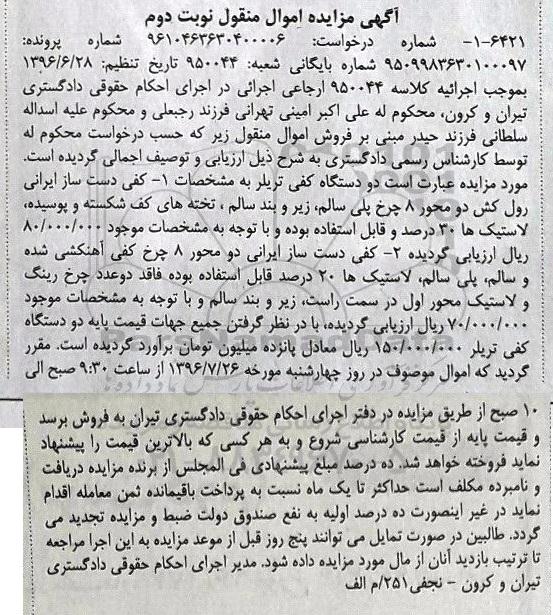 آگهی مزایده اموال منقول نوبت دوم
۶۴۲۱-۱- شماره درخواست: ۹۶۱۰۴۶۳۶۳۰۴۰۰۰۰۶ شماره پرونده:
۹۵۰۹۹۸۳۶۳۰۱۰۰۰۹۷ شماره بایگانی شعبه: ۹۵۰۰۴۴ تاریخ تنظیم: ۱۳۹۶/۶/۲۸
بموجب اجرائیه کلاسه ۹۵۰۰۴۴ ارجاعی اجرائی در اجرای احکام حقوقی دادگستری
تیران و کرون، محکوم له علی اکبر امینی تهرانی فرزند رجبعلی و محکوم علیه اسداله
سلطانی فرزند حیدر مبنی بر فروش اموال منقول زیر که حسب درخواست محکوم له
توسط کارشناس رسمی دادگستری به شرح ذیل ارزیابی و توصیف اجمالی گردیده است.
مورد مزایده عبارت است دو دستگاه کفی تریلر به مشخصات ۱- کفی دست ساز ایرانی
رول کش دو محور ۸ چرخ پلی سالم، زیر و بند سالم ، تخته های کف شکسته و پوسیده،
لاستیک ها ۳۰ درصد و قابل استفاده بوده و با توجه به مشخصات موجود ۸۰/۰۰۰/۰۰۰
ریال ارزیابی گردیده ۲- کفی دست ساز ایرانی دو محور ۸ چرخ کفی آهنکشی شده
و سالم، پلی سالم، لاستیک ها ۲۰ درصد قابل استفاده بوده فاقد دوعدد چرخ رینگ
و لاستیک محور اول در سمت راست، زیر و بند سالم و با توجه به مشخصات موجود
۷۰/۰۰۰/۰۰۰ ریال ارزیابی گردیده، با در نظر گرفتن جمیع جهات قیمت پایه دو دستگاه
کفی تریلر ۱۵۰/۰۰۰/۰۰۰ ریال معادل پانزده میلیون تومان برآورد گردیده است. مقرر
گردید که اموال موصوف در روز چهارشنبه مورخه ۱۳۹۶/۷/۲۶ از ساعت ۹:۳۰ صبح الی
۱۰ صبح از طریق مزایده در دفتر اجرای احکام حقوقی دادگستری تیران به فروش برسد
و قیمت پایه از قیمت کارشناسی شروع و به هر کسی که بالاترین قیمت را پیشنهاد
نماید فروخته خواهد شد. ده درصد مبلغ پیشنهادی فی المجلس از برنده مزایده دریافت
و نامبرده مکلف است حداکثر تا یک ماه نسبت به پرداخت باقیمانده ثمن معامله اقدام
نماید در غیر اینصورت ده درصد اولیه به نفع صندوق دولت ضبط و مزایده تجدید می
گردد. طالبین در صورت تمایل می توانند پنج روز قبل از موعد مزایده به این اجرا مراجعه
تا ترتیب بازدید آنان از مال مورد مزایده داده شود. مدیر اجرای احکام حقوقی دادگستری
تیران و کرون - نجفی۲۵۱/م الف